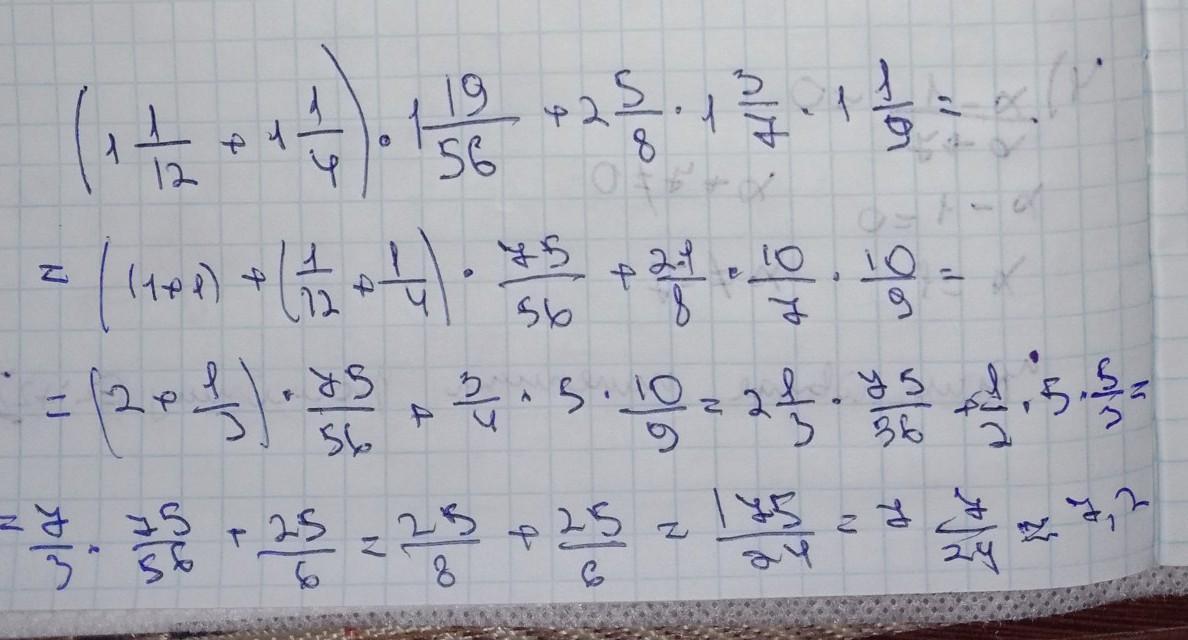 (1 1/12 + 1 1/4) · 1 19/56 + 2 5/8 · 1 3/7 · 1 1/9 =
= ((1+1) + (1/12 + 1/4) · 75/56 + 21/8 · 10/7 · 10/9 =
= (2 + 1/3) · 75/56 + 3/4 · 5 · 10/9 = 2 1/3 · 75/56 + 1/2 · 5 · 5/3 =
= 7/3 · 75/56 + 25/6 = 25/8 + 25/6 = 175/24 = 7 7/24 ≈ 7,2